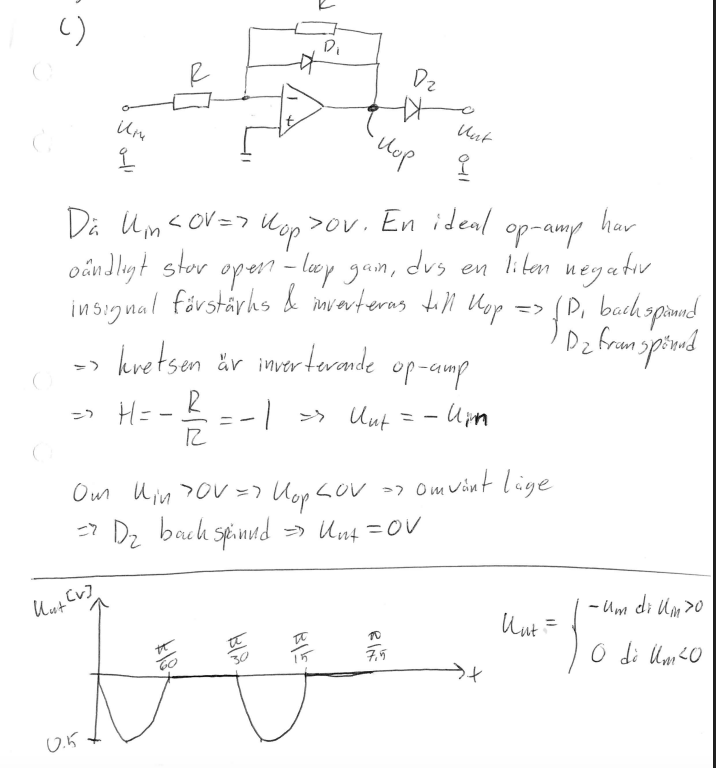 C)
R
D₁
R
D₂
-
+
Uin
Uop
Uut
Då Uin < 0V => Uop > 0V. En ideal op-amp har
oändligt stor open-loop gain, dvs en liten negativ
insignal förstärks & inverteras till Uop => { D₁ backspänd
D₂ framspänd
=> kretsen är inverterande op-amp
=> H = - R/R = -1 => Uut = - Uin
Om Uin > 0V => Uop < 0V => omvänt läge
=> D₂ backspänd => Uut = 0V
Uut [V]
π/60 π/30 π/15 π/7,5
t
0.5
Uut = { -Uin då Uin > 0
0 då Uin < 0